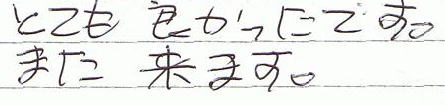 とても 良かったです。
また 来ます。